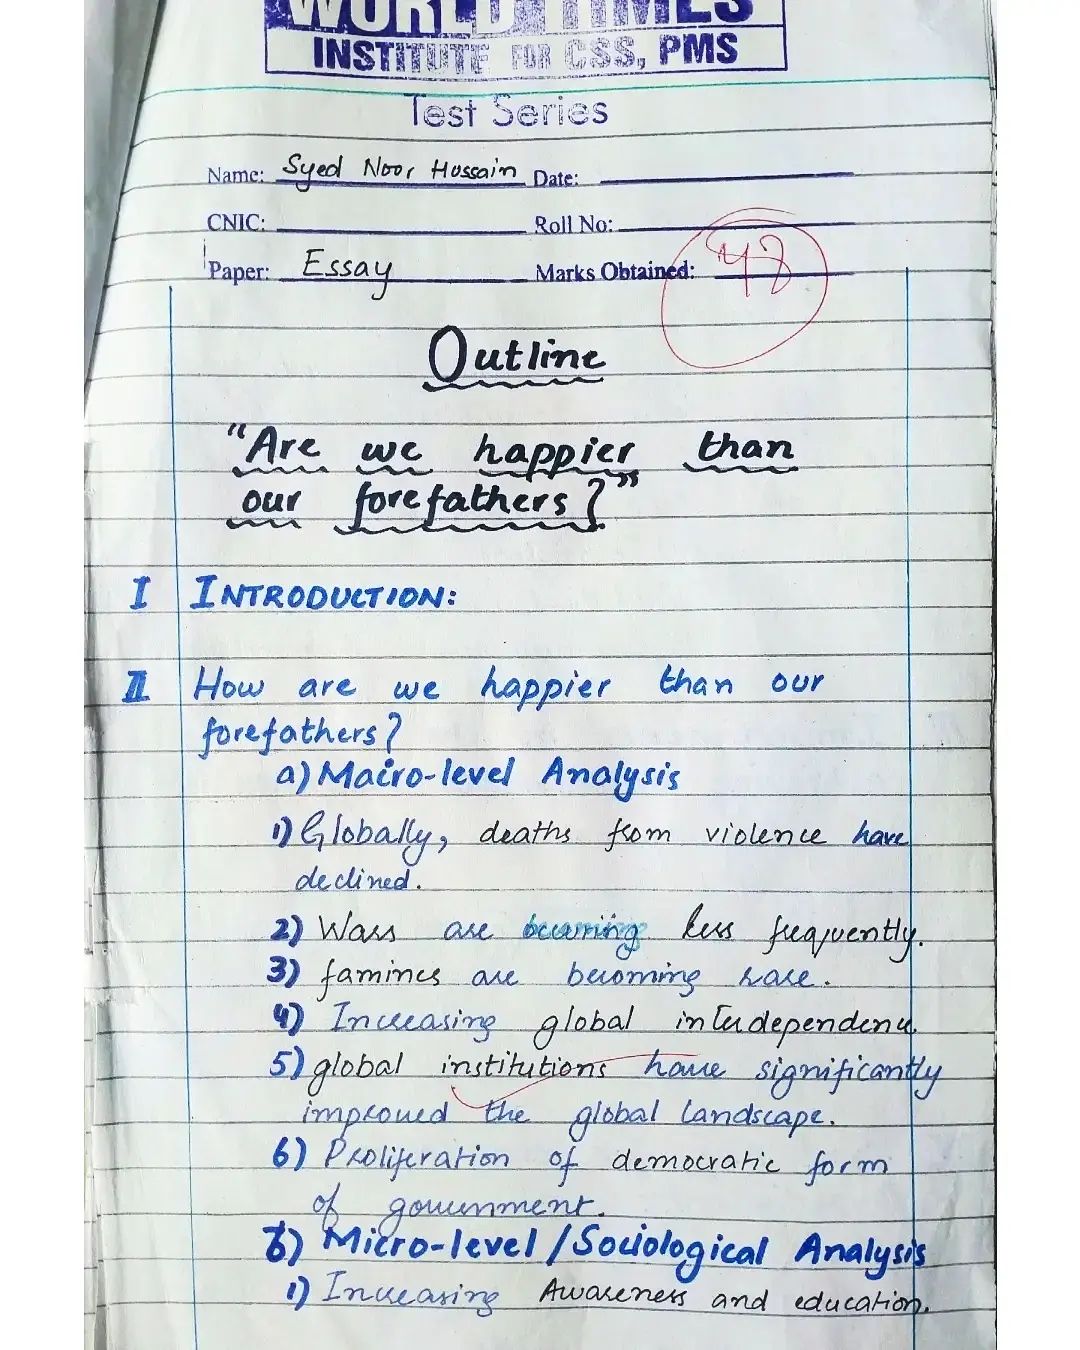 WORLD TIMES
INSTITUTE FOR CSS, PMS
Test Series
Name: Syed Noor Hussain Date:
CNIC: Roll No:
Paper: Essay Marks Obtained: 48
Outline
"Are we happier than
our forefathers?"
I INTRODUCTION:
II How are we happier than our
forefathers?
a) Macro-level Analysis
1) Globally, deaths from violence have
declined.
2) Wars are occurring less frequently.
3) famines are becoming rare.
4) Increasing global interdependency
5) global institutions have significantly
improved the global landscape.
6) Proliferation of democratic form
of government.
b) Micro-level/Sociological Analysis
1) Increasing Awareness and education.